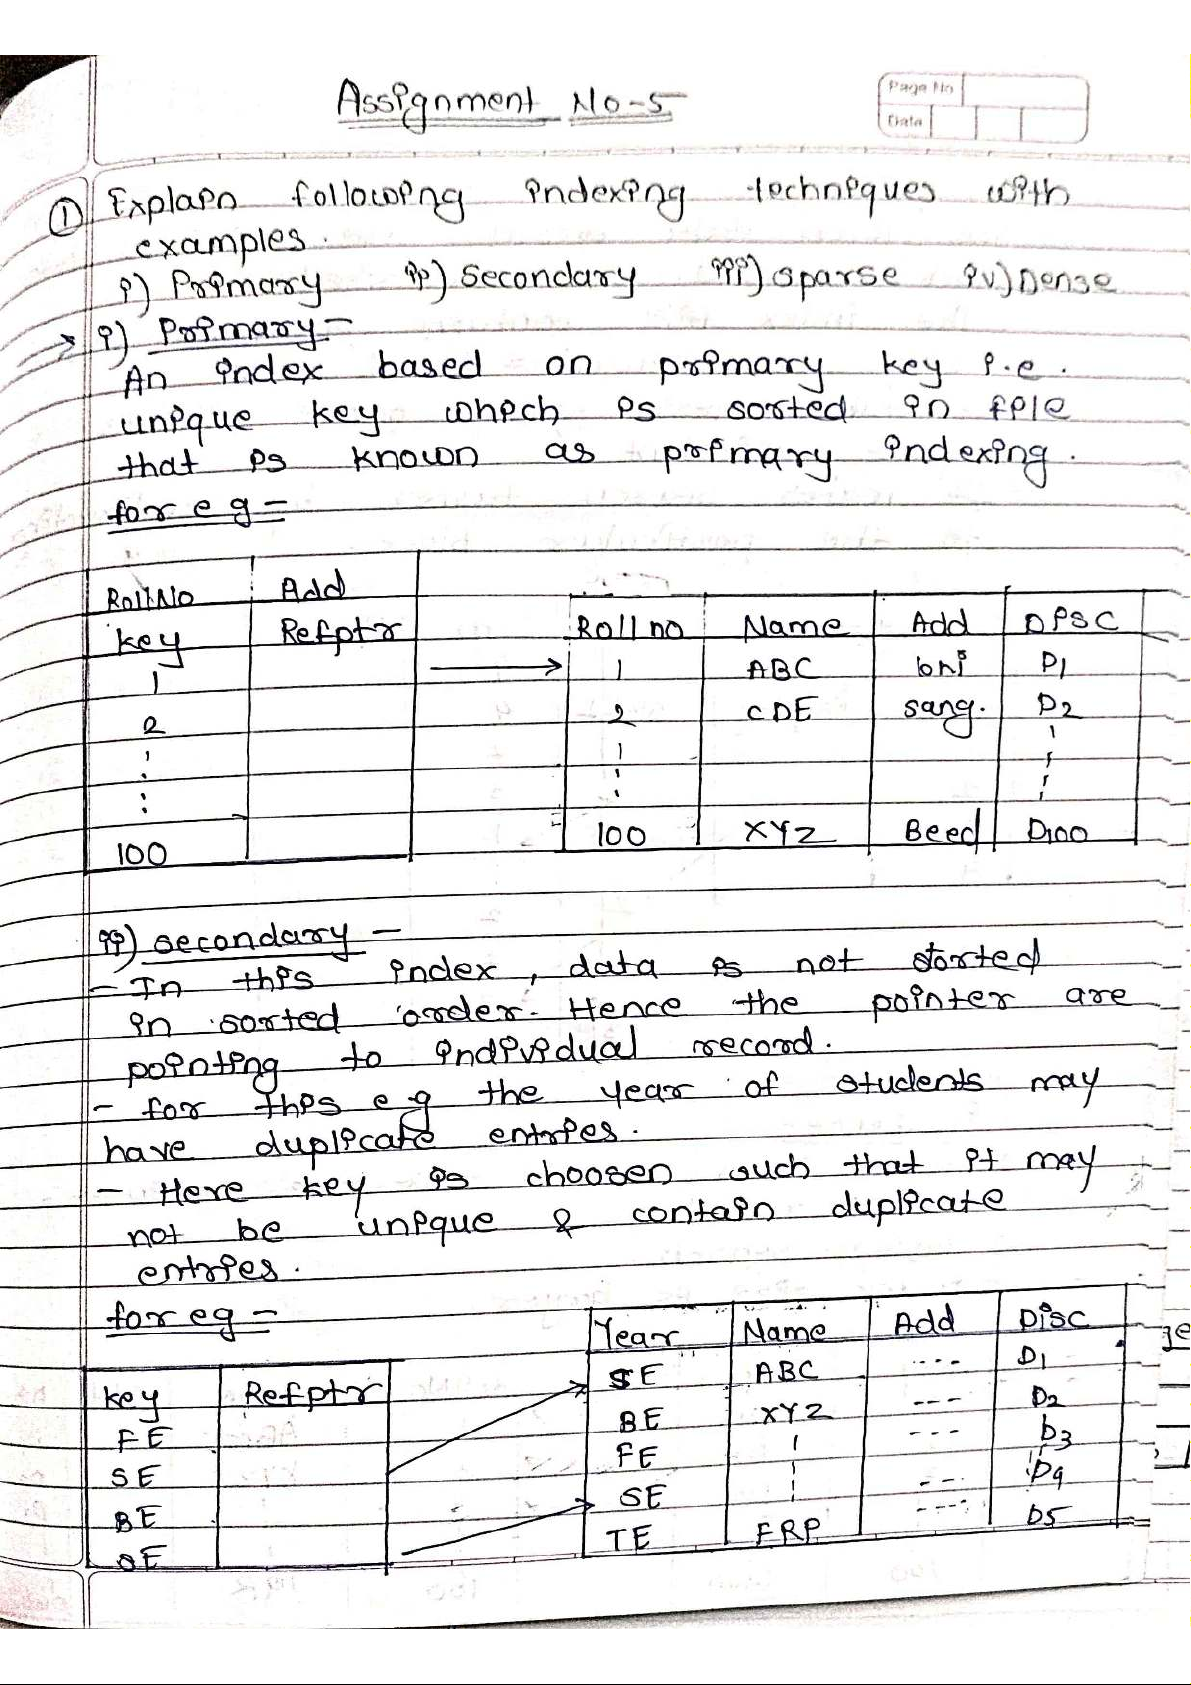 Assignment No-5
Page No
Date
① Explain following indexing techniques with
examples.
i) Primary ii) Secondary iii) sparse iv) Dense
→ i) Primary -
An index based on primary key i.e.
unique key which is sorted in file
that is known as primary indexing.
for eg =
Roll.No Add
key Refptr
1
2
100
Roll no Name Add DISC
1 ABC bni D1
2 CDE sang. D2
100 XYZ Beed D100
ii) secondary -
- In this index, data is not stored
in sorted order. Hence the pointer are
pointing to individual record.
- for this eg the year of students may
have duplicate entries.
- Here key is choosen such that it may
not be unique & contain duplicate
entries.
for eg -
key Refptr
FE
SE
BE
SE
Year Name Add Disc
SE ABC ---- D1
BE XYZ --- D2
FE --- D3
SE --- D4
TE ERP ---- D5